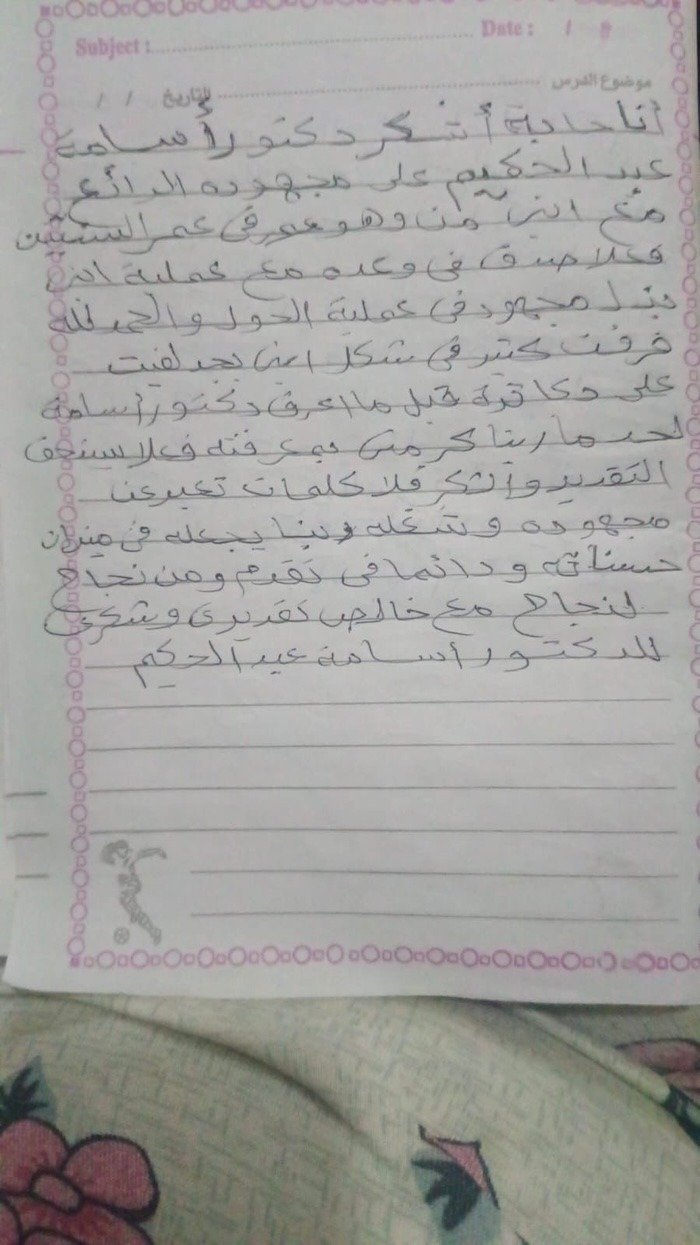 Subject : Date : / /
موضوع الدرس التاريخ / /
أنا حابة أشكر دكتور أسامة
عبد الحكيم على مجهوده الرائع
مع ابني من وهو عمر في عمر السنتين
فعلا صدق في وعده مع عملية ابني
بذل مجهود في عملية الحول والحمد لله
فرقت كتير في شكل ابني بعد لفيت
على دكاترة قبل ما اعرف دكتور أسامة
لحد ما ربنا كرمني بمعرفته فعلا يستحق
التقدير والشكر فلا كلمات تعبر عن
مجهوده وشغله ربنا يجعله في ميزان
حسناته ودائما في تقدم ومن نجاح
لنجاح مع خالص تقديري وشكري
للدكتور أسامة عبد الحكيم